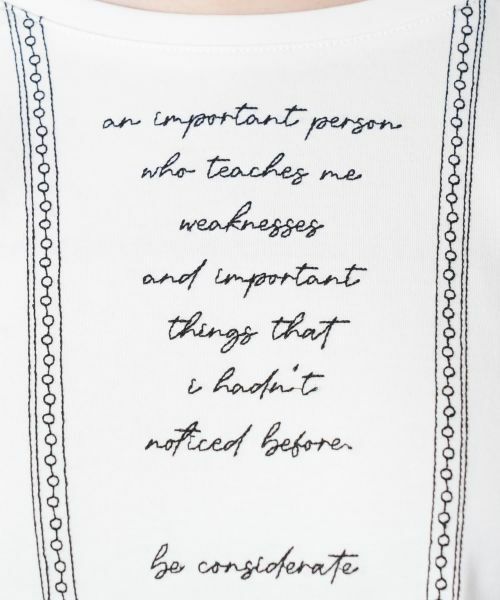 an important person
who teaches me
weaknesses
and important
things that
i hadn't
noticed before.
be considerate